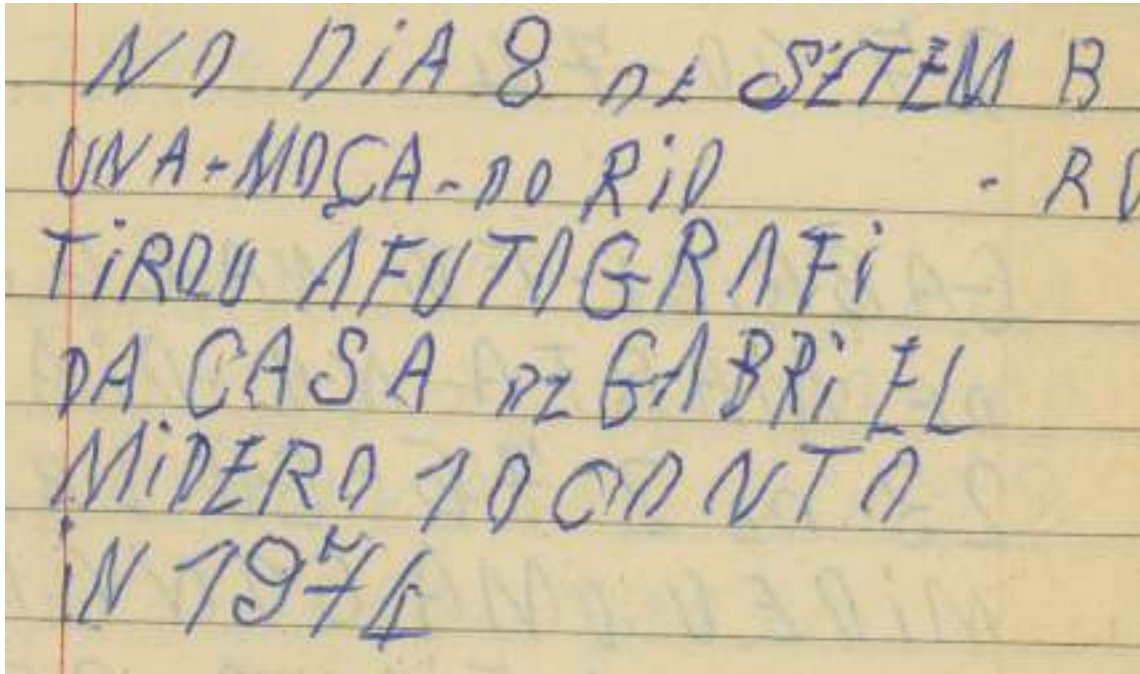 NO DiA 8 DE SETEM B
UNA-MOÇA-DO RiO - RO
TiROU AFUTOGRAFi
DA CASA DE GABRiEL
MiDERO 10 CONTO
iN 1974